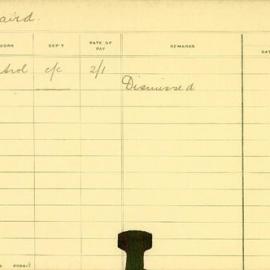 aird.
WORK DEP'T RATE OF PAY REMARKS DAT
trol c/c 2/1
Dismissed